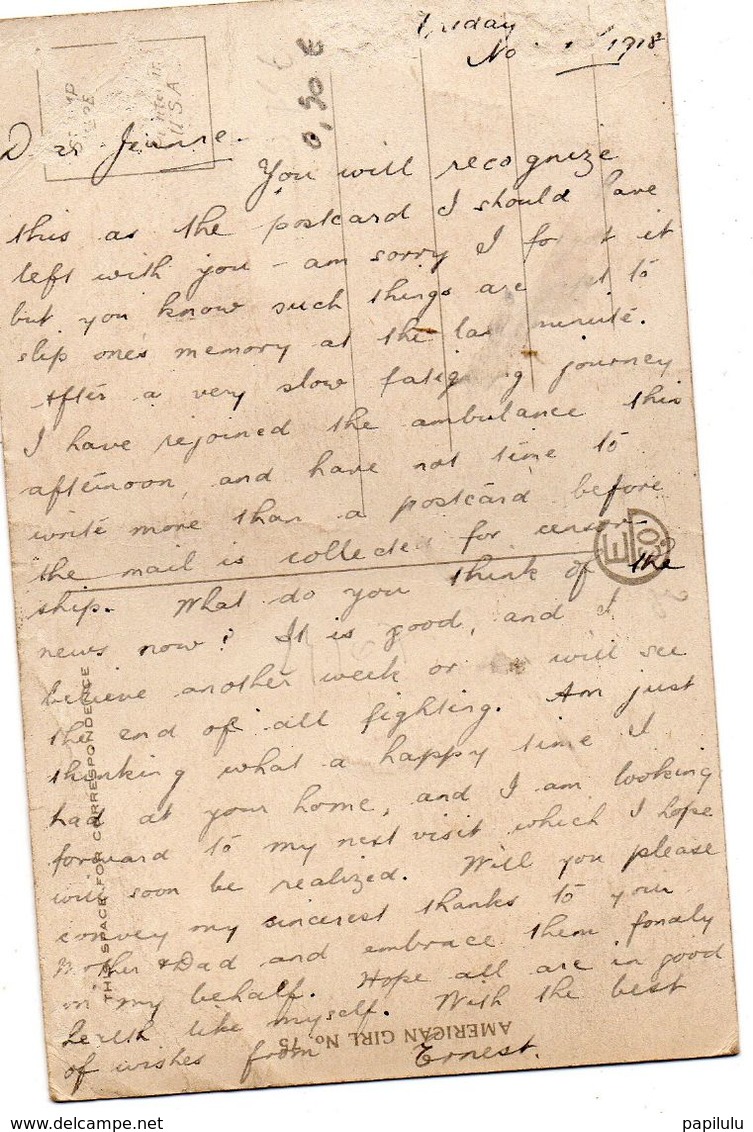 Friday
1918
0,50 €
STAMP
HERE
Printed in
U.S.A
Dear Jeanne.
You will recognize
this as the postcard I should have
left with you - am sorry I forgot it
but you know such things are apt to
slip one's memory at the last minute.
After a very slow fatiguing journey
I have rejoined the ambulance this
afternoon, and have not time to
write more than a postcard before
the mail is collected for censor-
ship. What do you think of the
news now? It is good, and I
believe another week or will see
the end of all fighting. Am just
thinking what a happy time I
had at your home, and I am looking
forward to my next visit which I hope
will soon be realized. Will you please
convey my sincerest thanks to your
Mother & Dad and embrace them fondly
on my behalf. Hope all are in good
health like myself. With the best
of wishes from Ernest.
THIS SPACE FOR CORRESPONDENCE
AMERICAN GIRL No. 75
delcampe.net
papilulu